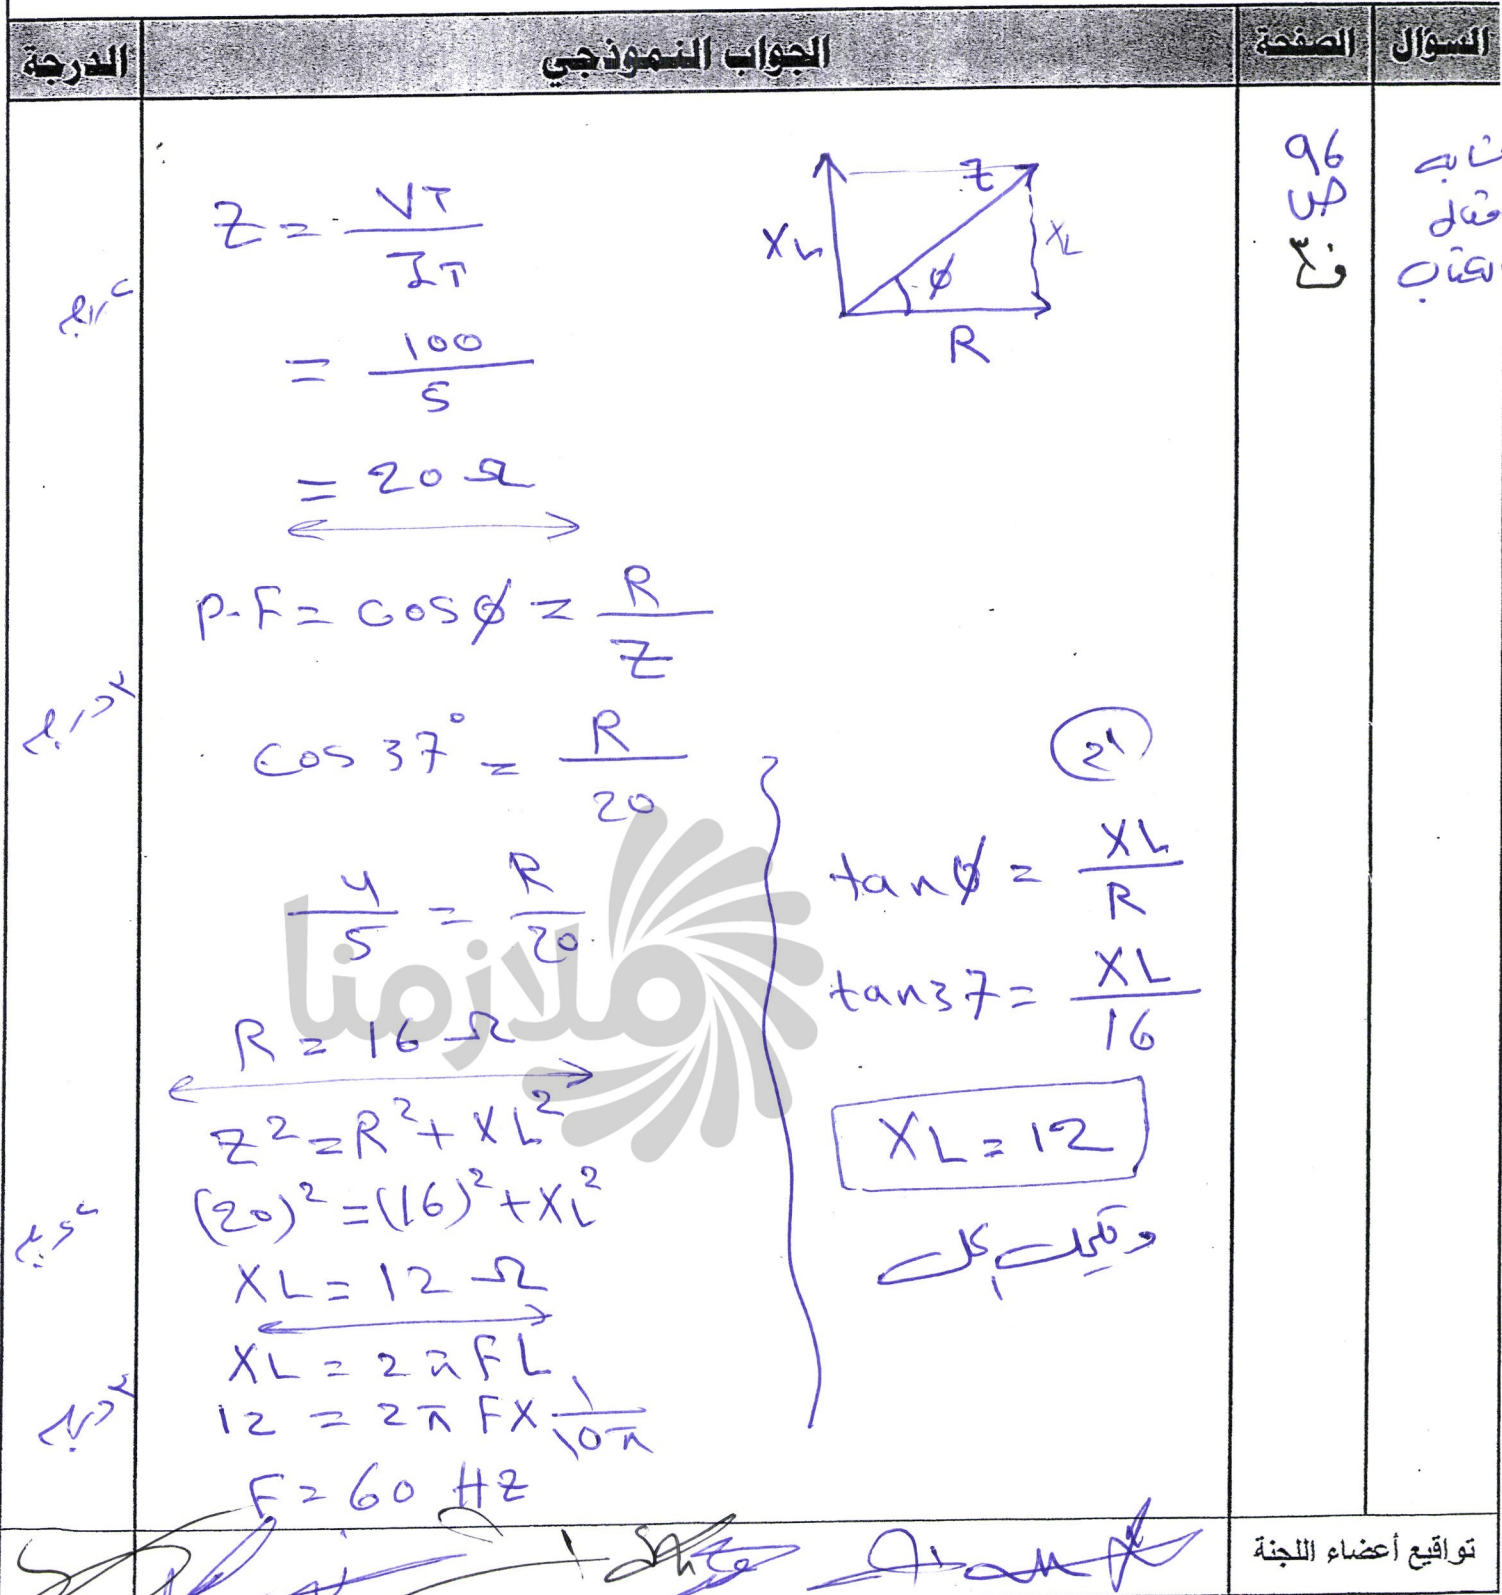 السؤال الصفحة الجواب النموذجي الدرجة
96
ص
ف٣
Z
XL
XL
ϕ
R
Z = VT / IT
= 100 / 5
= 20 Ω
P.F = cosϕ = R / Z
cos 37° = R / 20
4 / 5 = R / 20
R = 16 Ω
Z² = R² + XL²
(20)² = (16)² + XL²
XL = 12 Ω
XL = 2πFL
12 = 2π F × 1 / 10π
F = 60 HZ
tanϕ = XL / R
tan37 = XL / 16
XL = 12
ملازمنا
تواقيع أعضاء اللجنة